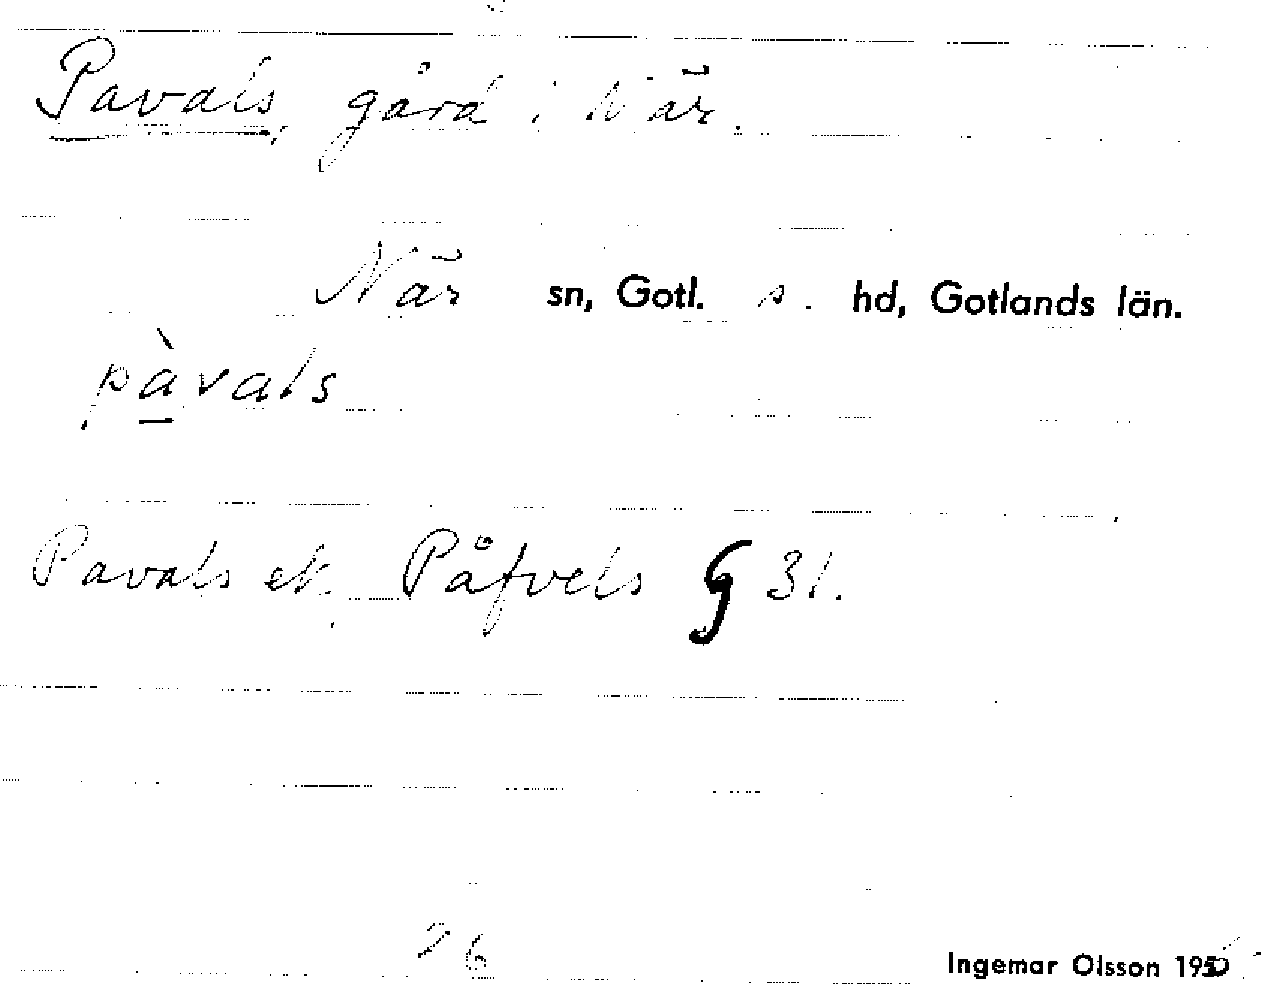 Pavals, gård i När.
När sn, Gotl. s. hd, Gotlands län.
pàvals
Pavals ek. Påfvels G 31.
26
Ingemar Olsson 195